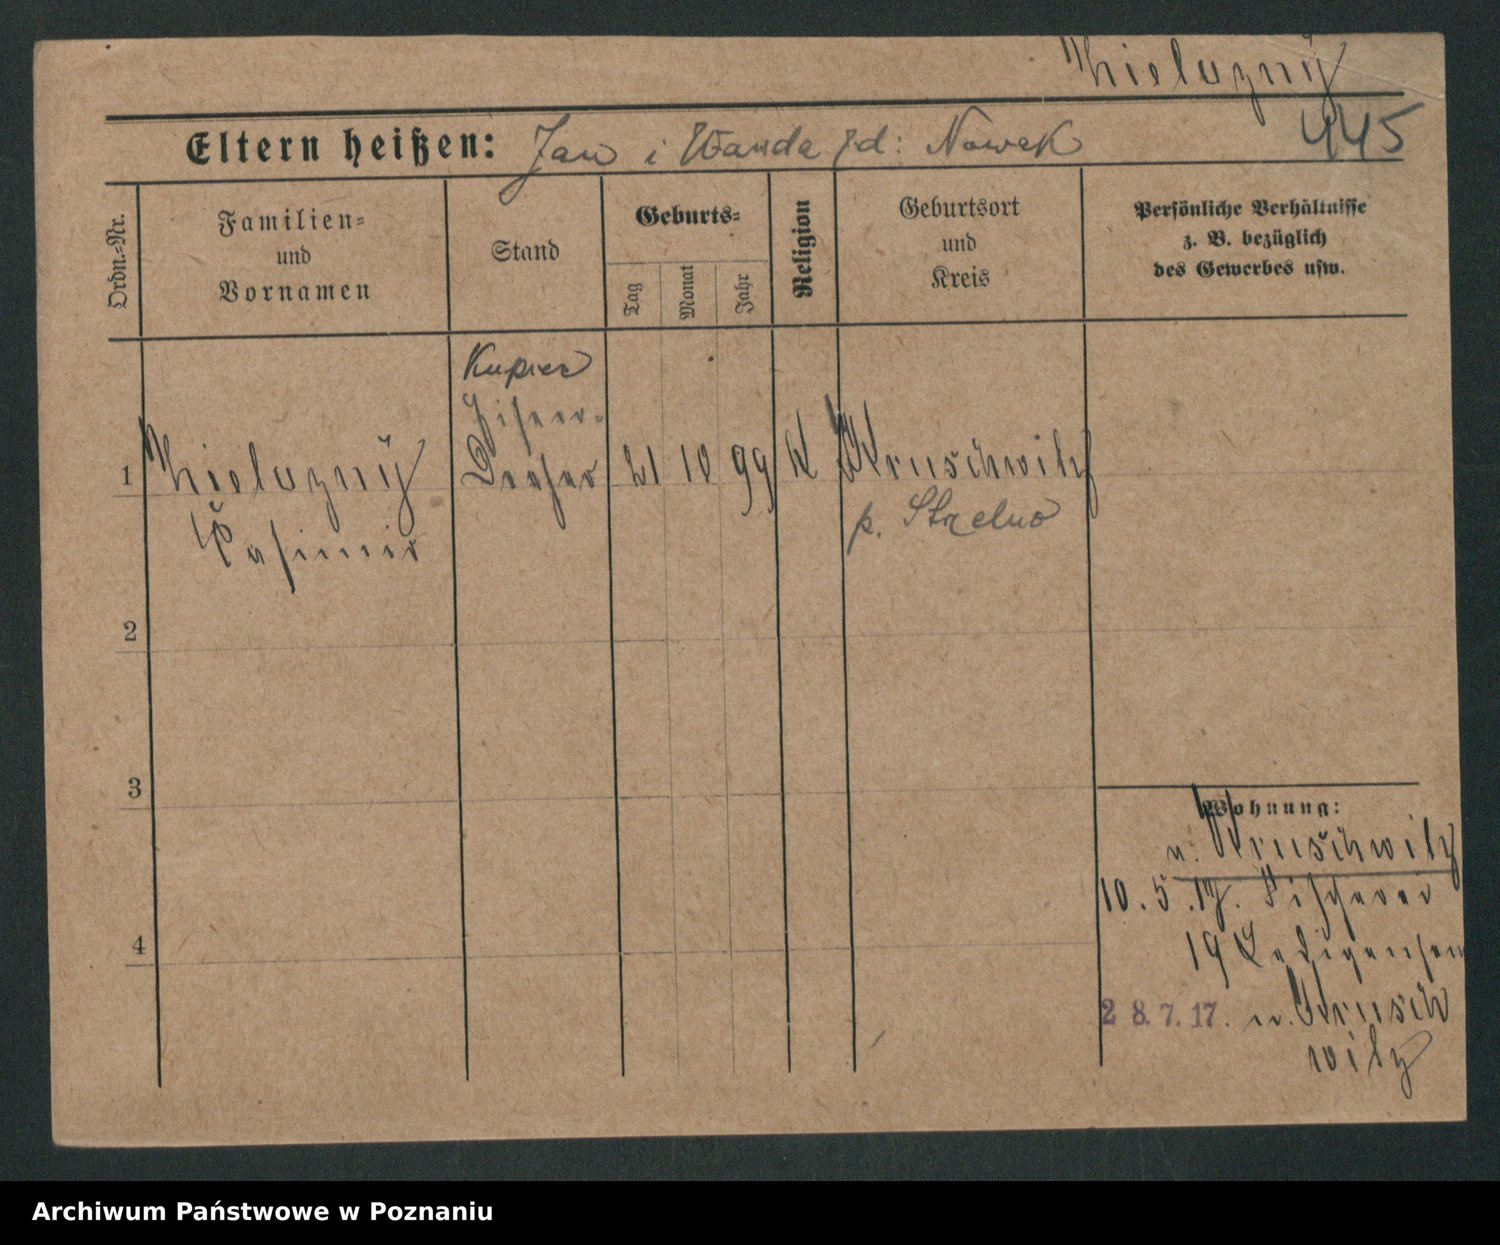 Kielazný
445
Eltern heißen: Jan i Wanda zd: Nowak
Ordn.-Nr.
Familien-
und
Vornamen
Stand
Geburts-
Tag
Monat
Jahr
Religion
Geburtsort
und
Kreis
Persönliche Verhältnisse
z. B. bezüglich
des Gewerbes usw.
Kupiec
Eisen-
Dreher
1 Kielazný 21 10 99 K Kruschwitz
Kasimir
p. Strzelno
2
3
4
Wohnung:
n. Kruschwitz
10.5.17. Fischerei
19
28.7.17. n. Krusch
witz
Archiwum Państwowe w Poznaniu